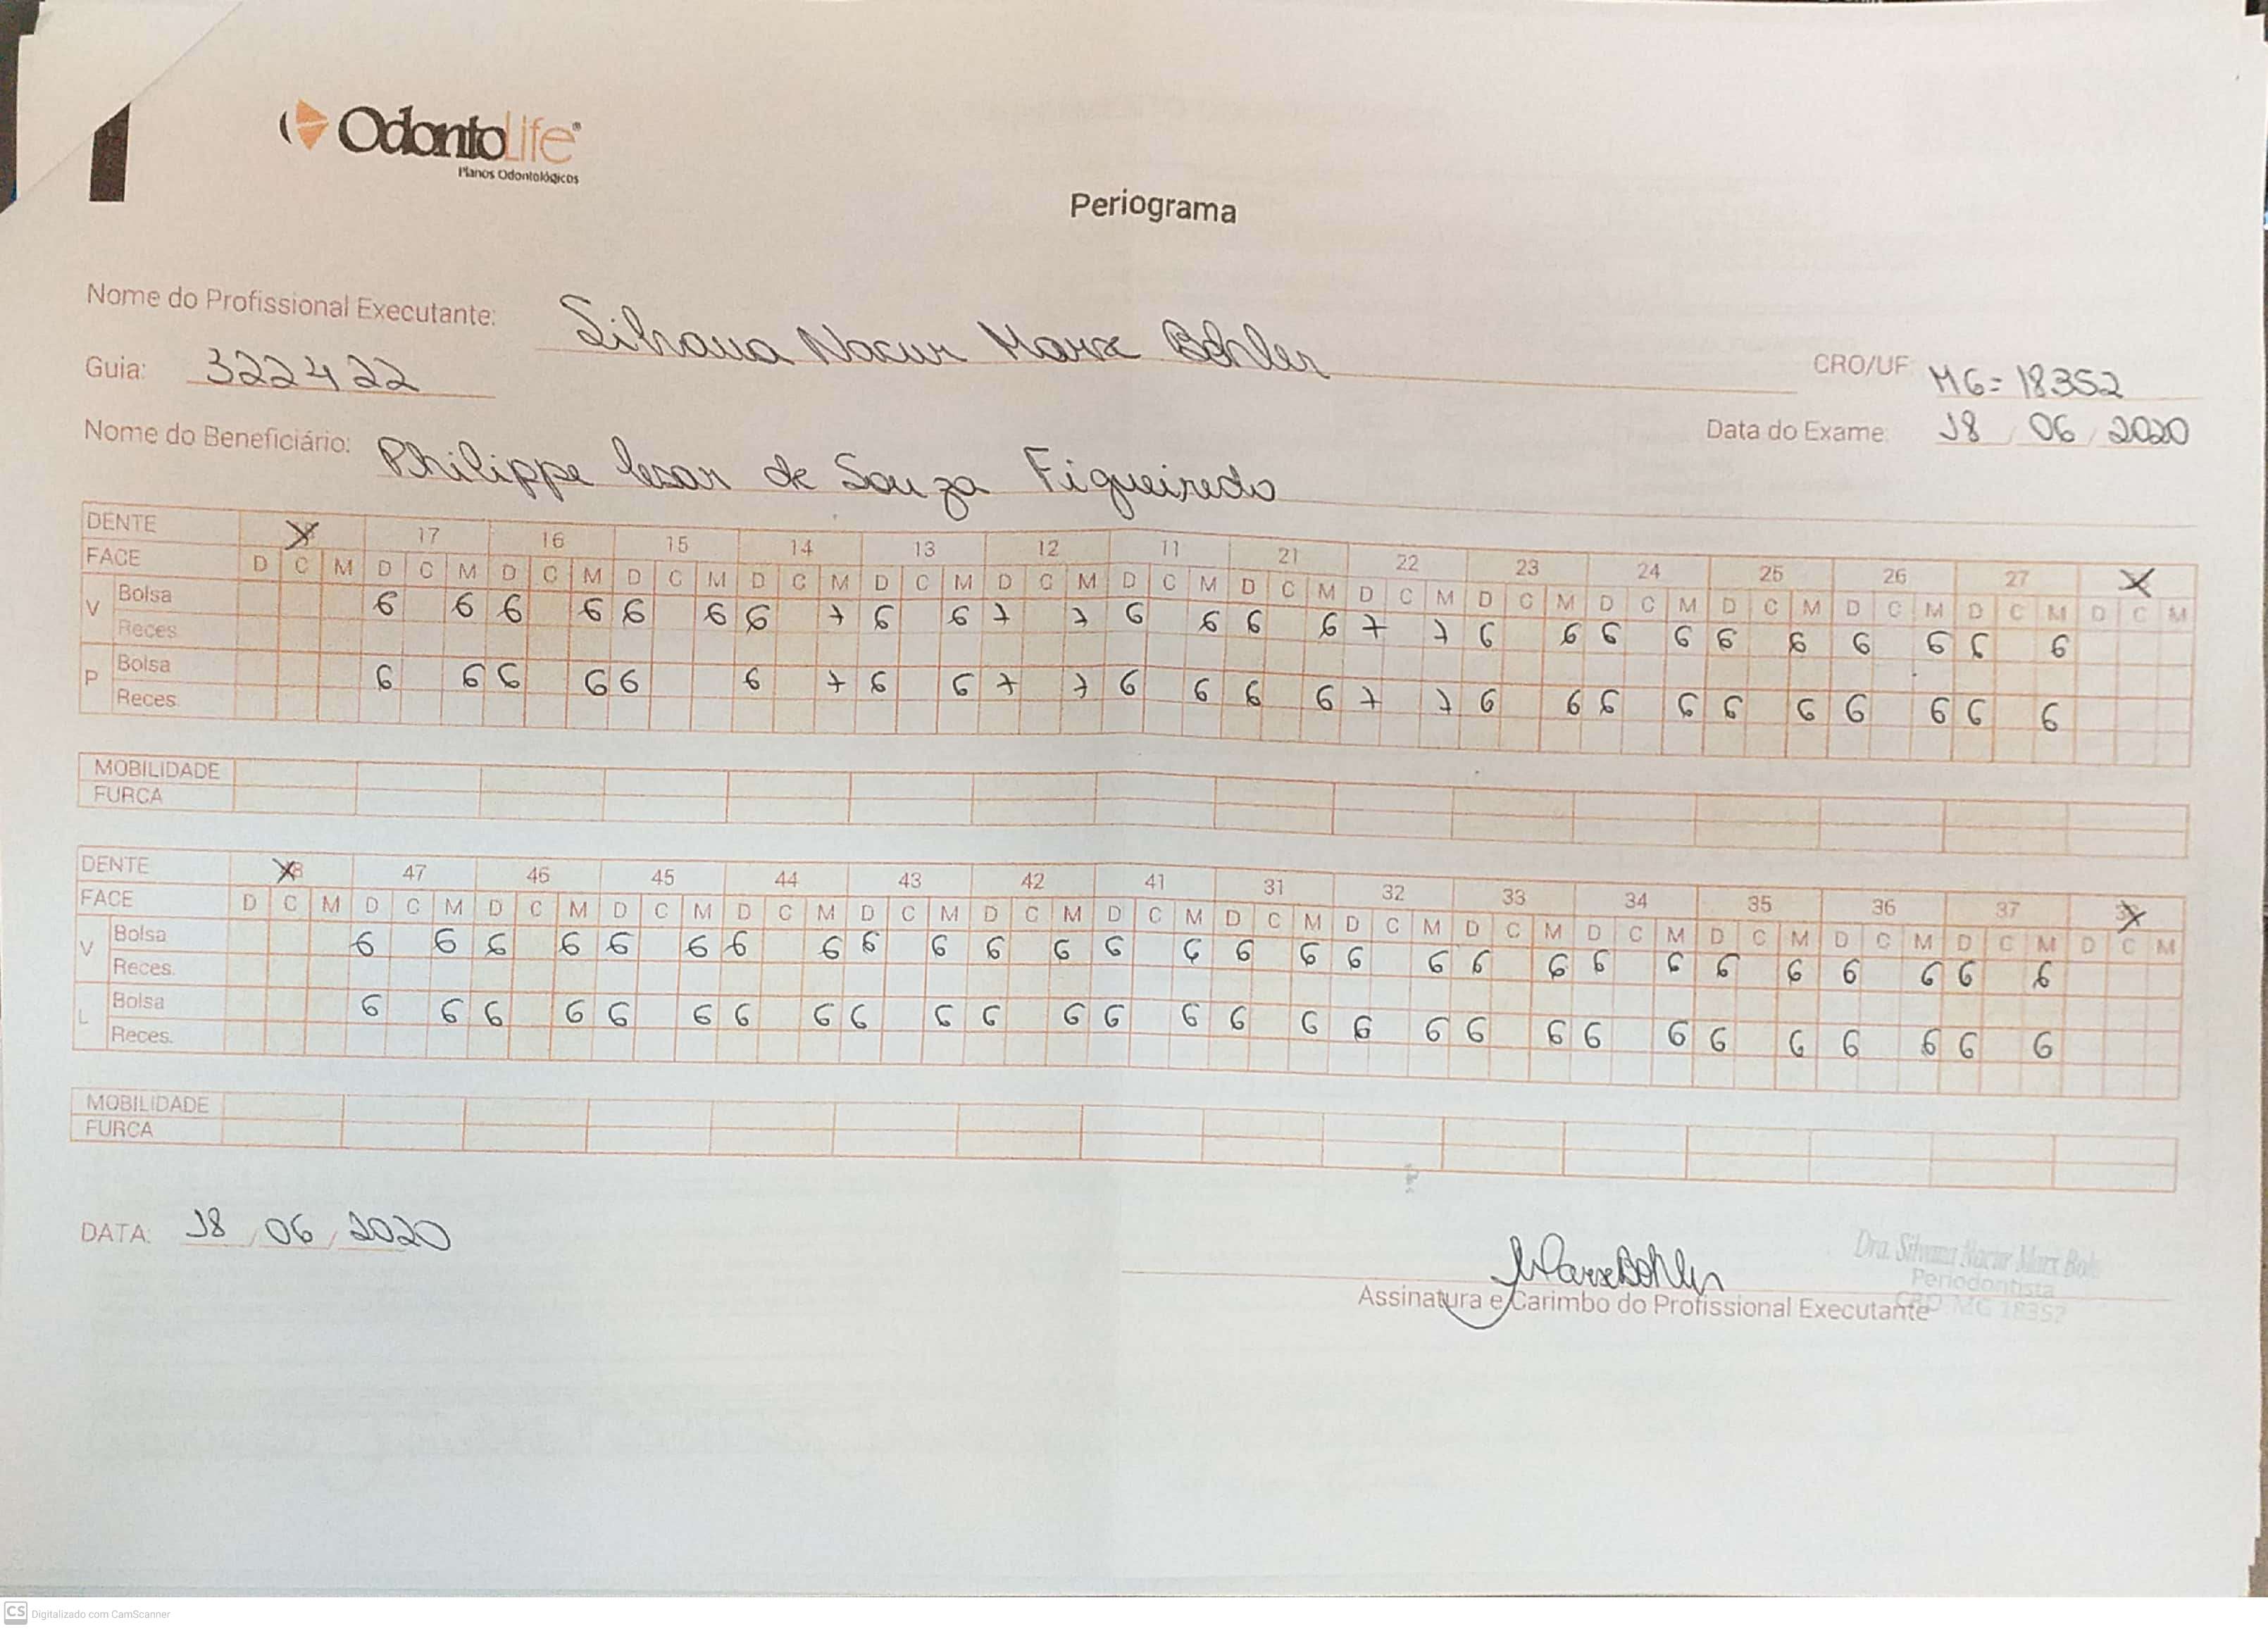 OdontoLife®
Planos Odontológicos
Periograma
Nome do Profissional Executante: Silvana Nacur Marx Bohler
CRO/UF: MG=18352
Guia: 322422
Data do Exame: 18 / 06 / 2020
Nome do Beneficiário: Philippe Cesar de Souza Figueiredo
DENTE X 17 16 15 14 13 12 11 21 22 23 24 25 26 27 X
FACE D C M D C M D C M D C M D C M D C M D C M D C M D C M D C M D C M D C M D C M D C M D C M D C M
V Bolsa 6 6 6 6 6 6 6 7 6 6 7 7 6 6 6 6 7 7 6 6 6 6 6 6 6 6 6 6
Reces.
P Bolsa 6 6 6 6 6 6 7 6 6 7 7 6 6 6 6 7 7 6 6 6 6 6 6 6 6 6 6
Reces.
MOBILIDADE
FURCA
DENTE X8 47 46 45 44 43 42 41 31 32 33 34 35 36 37 X
FACE D C M D C M D C M D C M D C M D C M D C M D C M D C M D C M D C M D C M D C M D C M D C M D C M
V Bolsa 6 6 6 6 6 6 6 6 6 6 6 6 6 6 6 6 6 6 6 6 6 6 6 6 6 6 6 6
Reces.
L Bolsa 6 6 6 6 6 6 6 6 6 6 6 6 6 6 6 6 6 6 6 6 6 6 6 6 6 6 6 6
Reces.
MOBILIDADE
FURCA
DATA: 18 / 06 / 2020
MarxBohler
Dra. Silvana Nacur Marx Bohl
Periodontista
CRO MG 18352
Assinatura e Carimbo do Profissional Executante
CS Digitalizado com CamScanner